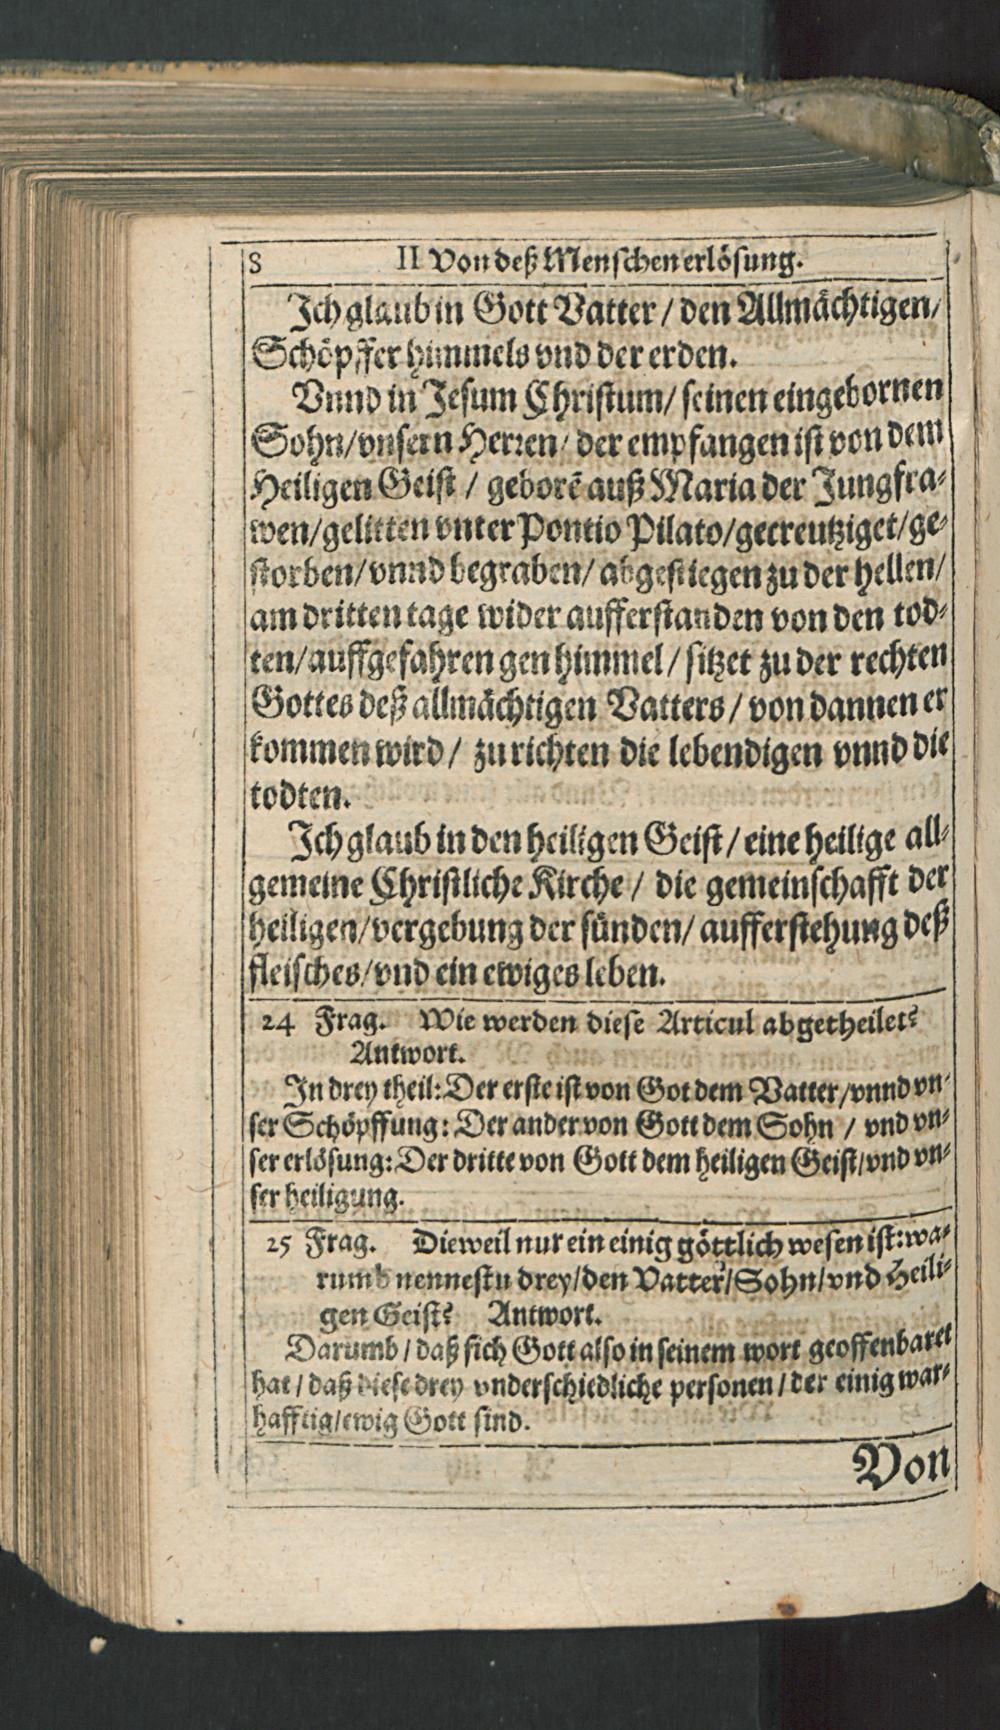 8 II Von deß Menschen erlösung.
Ich glaub in Gott Vatter / den Allmächtigen/
Schöpffer himmels vnd der erden.
Vnnd in Jesum Christum/ seinen eingebornen
Sohn/vnsern Herren/ der empfangen ist von dem
Heiligen Geist / geborẽ auß Maria der Jungfra-
wen/gelitten vnter Pontio Pilato/gecreutziget/ge-
storben/vnnd begraben/ abgestiegen zu der hellen/
am dritten tage wider aufferstanden von den tod-
ten/auffgefahren gen himmel/ sitzet zu der rechten
Gottes deß allmächtigen Vatters/ von dannen er
kommen wird/ zu richten die lebendigen vnnd die
todten.
Ich glaub in den heiligen Geist/ eine heilige all-
gemeine Christliche Kirche/ die gemeinschafft der
heiligen/vergebung der sünden/ aufferstehung deß
fleisches/vnd ein ewiges leben.
24 Frag. Wie werden diese Articul abgetheilet?
Antwort.
In drey theil: Der erste ist von Got dem Vatter/vnnd vn-
ser Schöpffung: Der ander von Gott dem Sohn / vnd vn-
ser erlösung: Der dritte von Gott dem heiligen Geist/vnd vn-
ser heiligung.
25 Frag. Dieweil nur ein einig göttlich wesen ist: wa-
rumb nennestu drey/den Vatter/Sohn/vnd Heili-
gen Geist? Antwort.
Darumb/ daß sich Gott also in seinem wort geoffenbaret
hat/ daß diese drey vnderschiedliche personen/ der einig war-
hafftig/ewig Gott sind.
Von